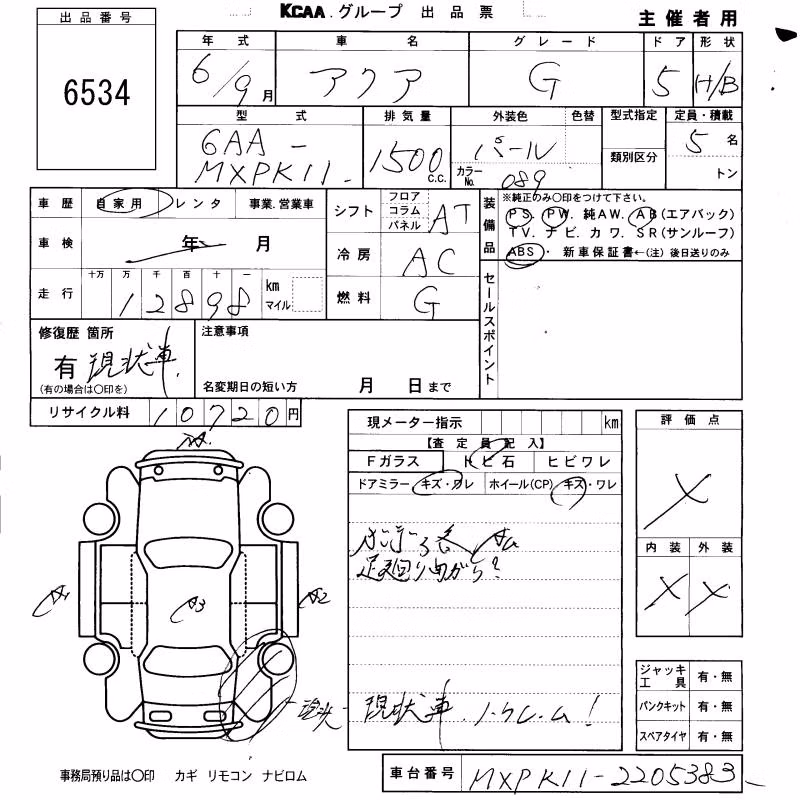 KCAA.グループ 出品票
主催者用
出品番号
6534
年式 車名 グレード ドア 形状
6/9月 アクア G 5 H/B
型式 排気量 外装色 色替 型式指定 定員・積載
6AA-
MXPK11- 1500 c.c. パール 5名
カラーNo. 089 類別区分 トン
車歴 自家用 レンタ 事業.営業車
車検 年 月
十万 万 千 百 十 一
走行 12898 km マイル
シフト フロア コラム パネル AT
冷房 AC
燃料 G
装備品
※純正のみ〇印をつけて下さい。
PS. PW. 純AW. AB(エアバック)
TV. ナビ. カワ. SR(サンルーフ)
ABS・ 新車保証書←(注) 後日送りのみ
セールスポイント
修復歴 箇所
有 現状車.
(有の場合は〇印を)
注意事項
名変期日の短い方 月 日まで
リサイクル料 10720円
現メーター指示 km
【査定員記入】
Fガラス トビ石 ヒビワレ
ドアミラー キズ・ワレ ホイール(CP) キズ・ワレ
足廻り曲がち?
現状車.ノークレーム!
評価点
X
内装 外装
X X
A1 A3 A2
現状
ジャッキ工具 有・無
パンクキット 有・無
スペアタイヤ 有・無
事務局預り品は〇印 カギ リモコン ナビロム
車台番号 MXPK11-2205383